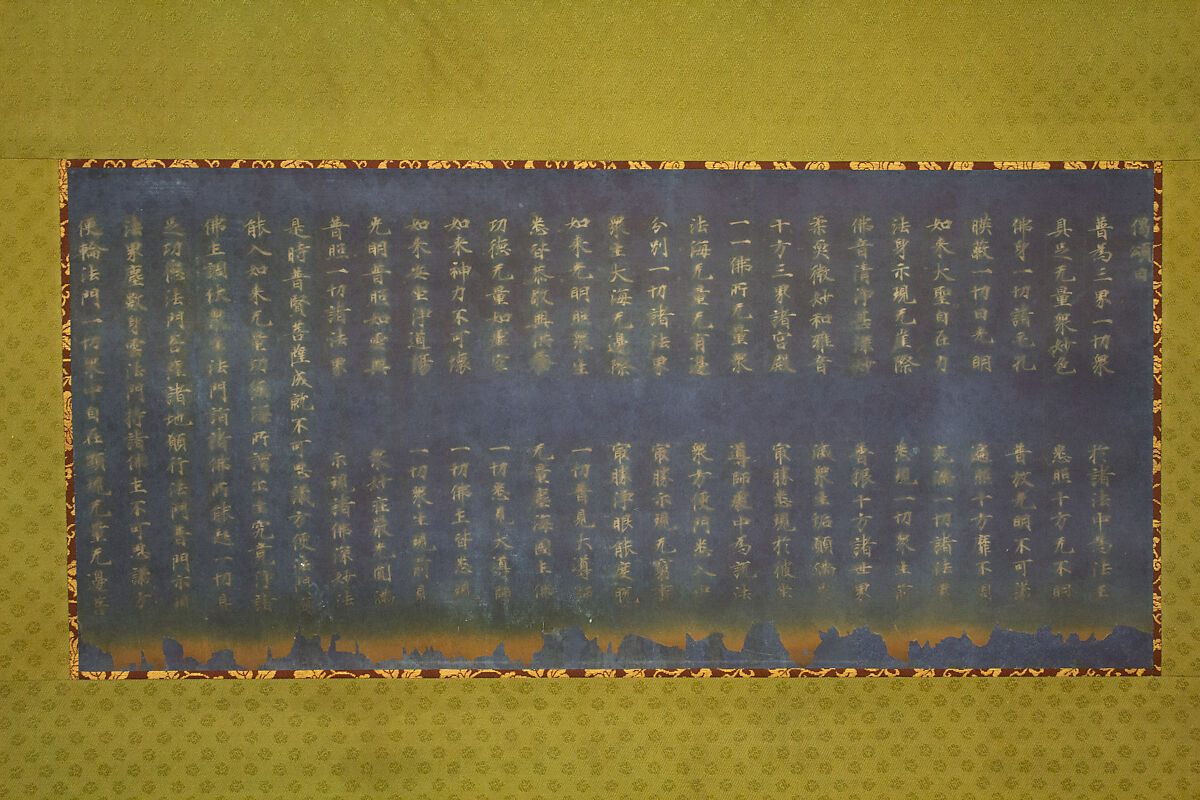 偈頌曰
普為三界一切衆　於諸法中為法王
具足无量衆妙色　悉照十方无不明
佛身一切諸毛孔　普放光明不可議
暎蔽一切日光明　遍照十方靡不周
如来大聖自在力　充滿一切諸法界
法身示現无崖際　悉現一切衆生前
佛音清淨甚深妙　普振十方諸世界
柔耎微妙和雅音　滅衆生垢願佛
十方三界諸宮殿　冣勝悉現於彼坐
一一佛所无量衆　導師處中為説法
法海无量无有邊　衆方便門悉入中
分別一切諸法界　冣勝示現无窮盡
衆生大海无邊際　冣勝淨眼能
如来光明照衆生　一切普見大導師
悉皆恭敬興供養　无量甚深國土佛
功德无量如虛空　一切悉見大導師
如来神力不可壞　一切佛土皆悉現
如来安坐淨道場　一切衆生現前見
光明普照如雲興　衆妙莊嚴光圓滿
普照一切諸法界　示現諸佛深妙法
是時普賢菩薩成就不可思議方便門
能入如来无量功德海所謂出生究竟淨諸
佛土調伏衆生法門詣諸佛所能起一切具
足功德法門菩薩諸地願行法門普門示現
法界塵數身雲法門持諸佛土不可思議方
便輪法門一切衆中自在顯現无量无邊菩